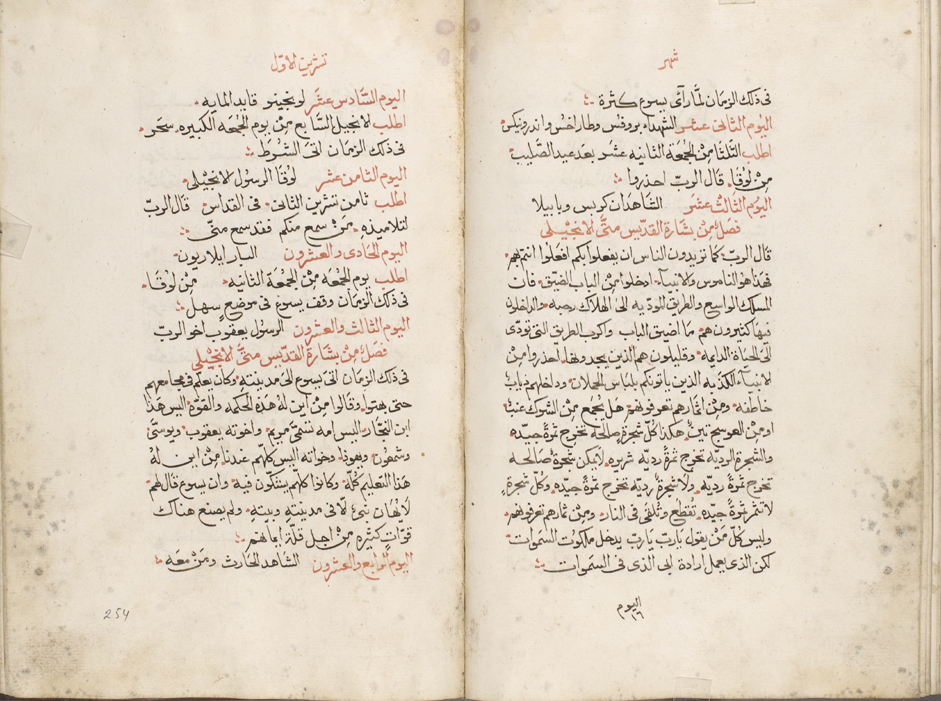 شهر
فى ذلك الزمان لما رآى يسوع كثرة
اليوم الثانى عشر الشهدا بروفس وطاراخس واندرونيكس
اطلب الثلثا من الجمعة الثانيه عشر بعد عيد الصليب
من لوقا قال الرب احذروا
اليوم الثالث عشر الشاهدان كربس وبابيلا
فصل من بشارة القديس متى الانجيلى
قال الرب كما تريدون الناس ان يفعلوا بكم افعلوا انتم بهم
فهذا هو الناموس والانبياء ادخلوا من الباب الضيق فان
المسلك الواسع والطريق الموديه الى الهلاك رحبه والداخلون
فيها كثيرون هم ما اضيق الباب وكرب الطريق التى تودى
الى الحياة الدايمه وقليلون هم الذين يجدونها احذروا من
الانبياء الكذبه الذين ياتونكم بلباس الحملان وداخلهم ذياب
خاطفه ومن اثمارهم تعرفونهم هل يجمع من الشوك عنب
او من العوسج تين هكذا كل شجرة صالحه تخرج ثمرة جيده
والشجرة الرديه تخرج ثمرة رديه شريره لا يمكن شجرة صالحه
تخرج ثمرة رديه ولا شجرة رديه تخرج ثمرة جيده وكل شجرة
لا تثمر ثمرة جيده تقطع وتلقى فى النار ومن ثمارهم تعرفونهم
وليس كل من يقول يا رب يا رب يدخل ملكوت السموات
لكن الذى يعمل ارادة ابى الذى فى السموات
اليوم
١٦
تشرين الاول
اليوم السادس عشر لونجينو قايد المايه
اطلب الانجيل السابع من يوم الجمعة الكبيره سحر
فى ذلك الزمان اتى الشرط
اليوم الثامن عشر لوقا الرسول الانجيلى
اطلب ثامن تشرين الثانى فى القداس قال الرب
لتلاميذه من سمع منكم فقد سمع منى
اليوم الحادى والعشرون البار ايلاريون
اطلب يوم الجمعة من الجمعة الثانيه من لوقا
فى ذلك الزمان وقف يسوع فى موضع سهل
اليوم الثالث والعشرون الرسول يعقوب اخو الرب
فصل من بشارة القديس متى الانجيلى
فى ذلك الزمان اتى يسوع الى مدينته وكان يعلم فى مجامعهم
حتى بهتوا وقالوا من اين له هذه الحكمه والقوه اليس هذا
ابن النجار اليس امه تسمى مريم واخوته يعقوب ويوسى
وشمعون ويهوذا وخواته اليس كلهم عندنا من اين له
هذا التعليم كله وكانوا كلهم يشكون فيه وان يسوع قال لهم
لا يهان نبى الا فى مدينته وبيته ولم يصنع هناك
قوات كثيره من اجل قلة ايمانهم
اليوم الرابع والعشرون الشاهد الحارث ومن معه
254